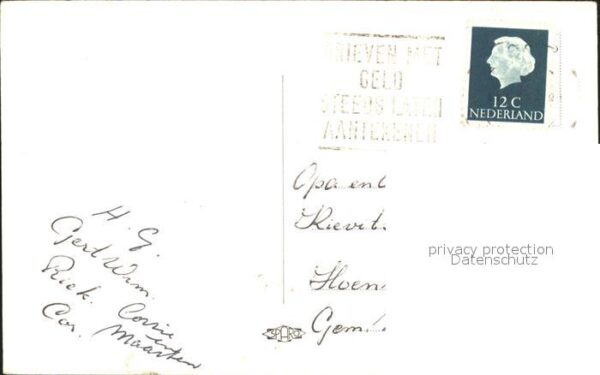 BRIEVEN MET
GELD
STEEDS LATEN
AANTEKENEN
12 C
NEDERLAND
Opa en
Kievit
Hoen
Gem
privacy protection
Datenschutz
H. G.
Gert Wim.
Riek. Corrie
Cor. en
Maarten
SPARO